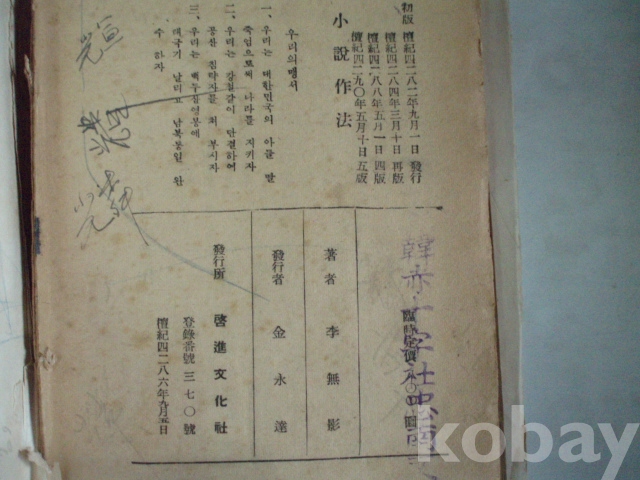 初版 檀紀四二八二年九月一日 發行
檀紀四二八四年三月十日 再版
檀紀四二八八年五月一日 四版
檀紀四二九〇年五月十日 五版
小說作法
우리의맹서
一、우리는 대한민국의 아들 딸
죽엄으로써 나라를 지키자
二、우리는 강철같이 단결하여
공산 침략자를 쳐 부시자
三、우리는 백두산영봉에
태극기 날리고 남북통일 완
수 하자
臨時定價
著者 李無影
發行者 金永達
發行所 啓進文化社
登錄番號 三七〇號
檀紀四二八六年九月五日
kobay